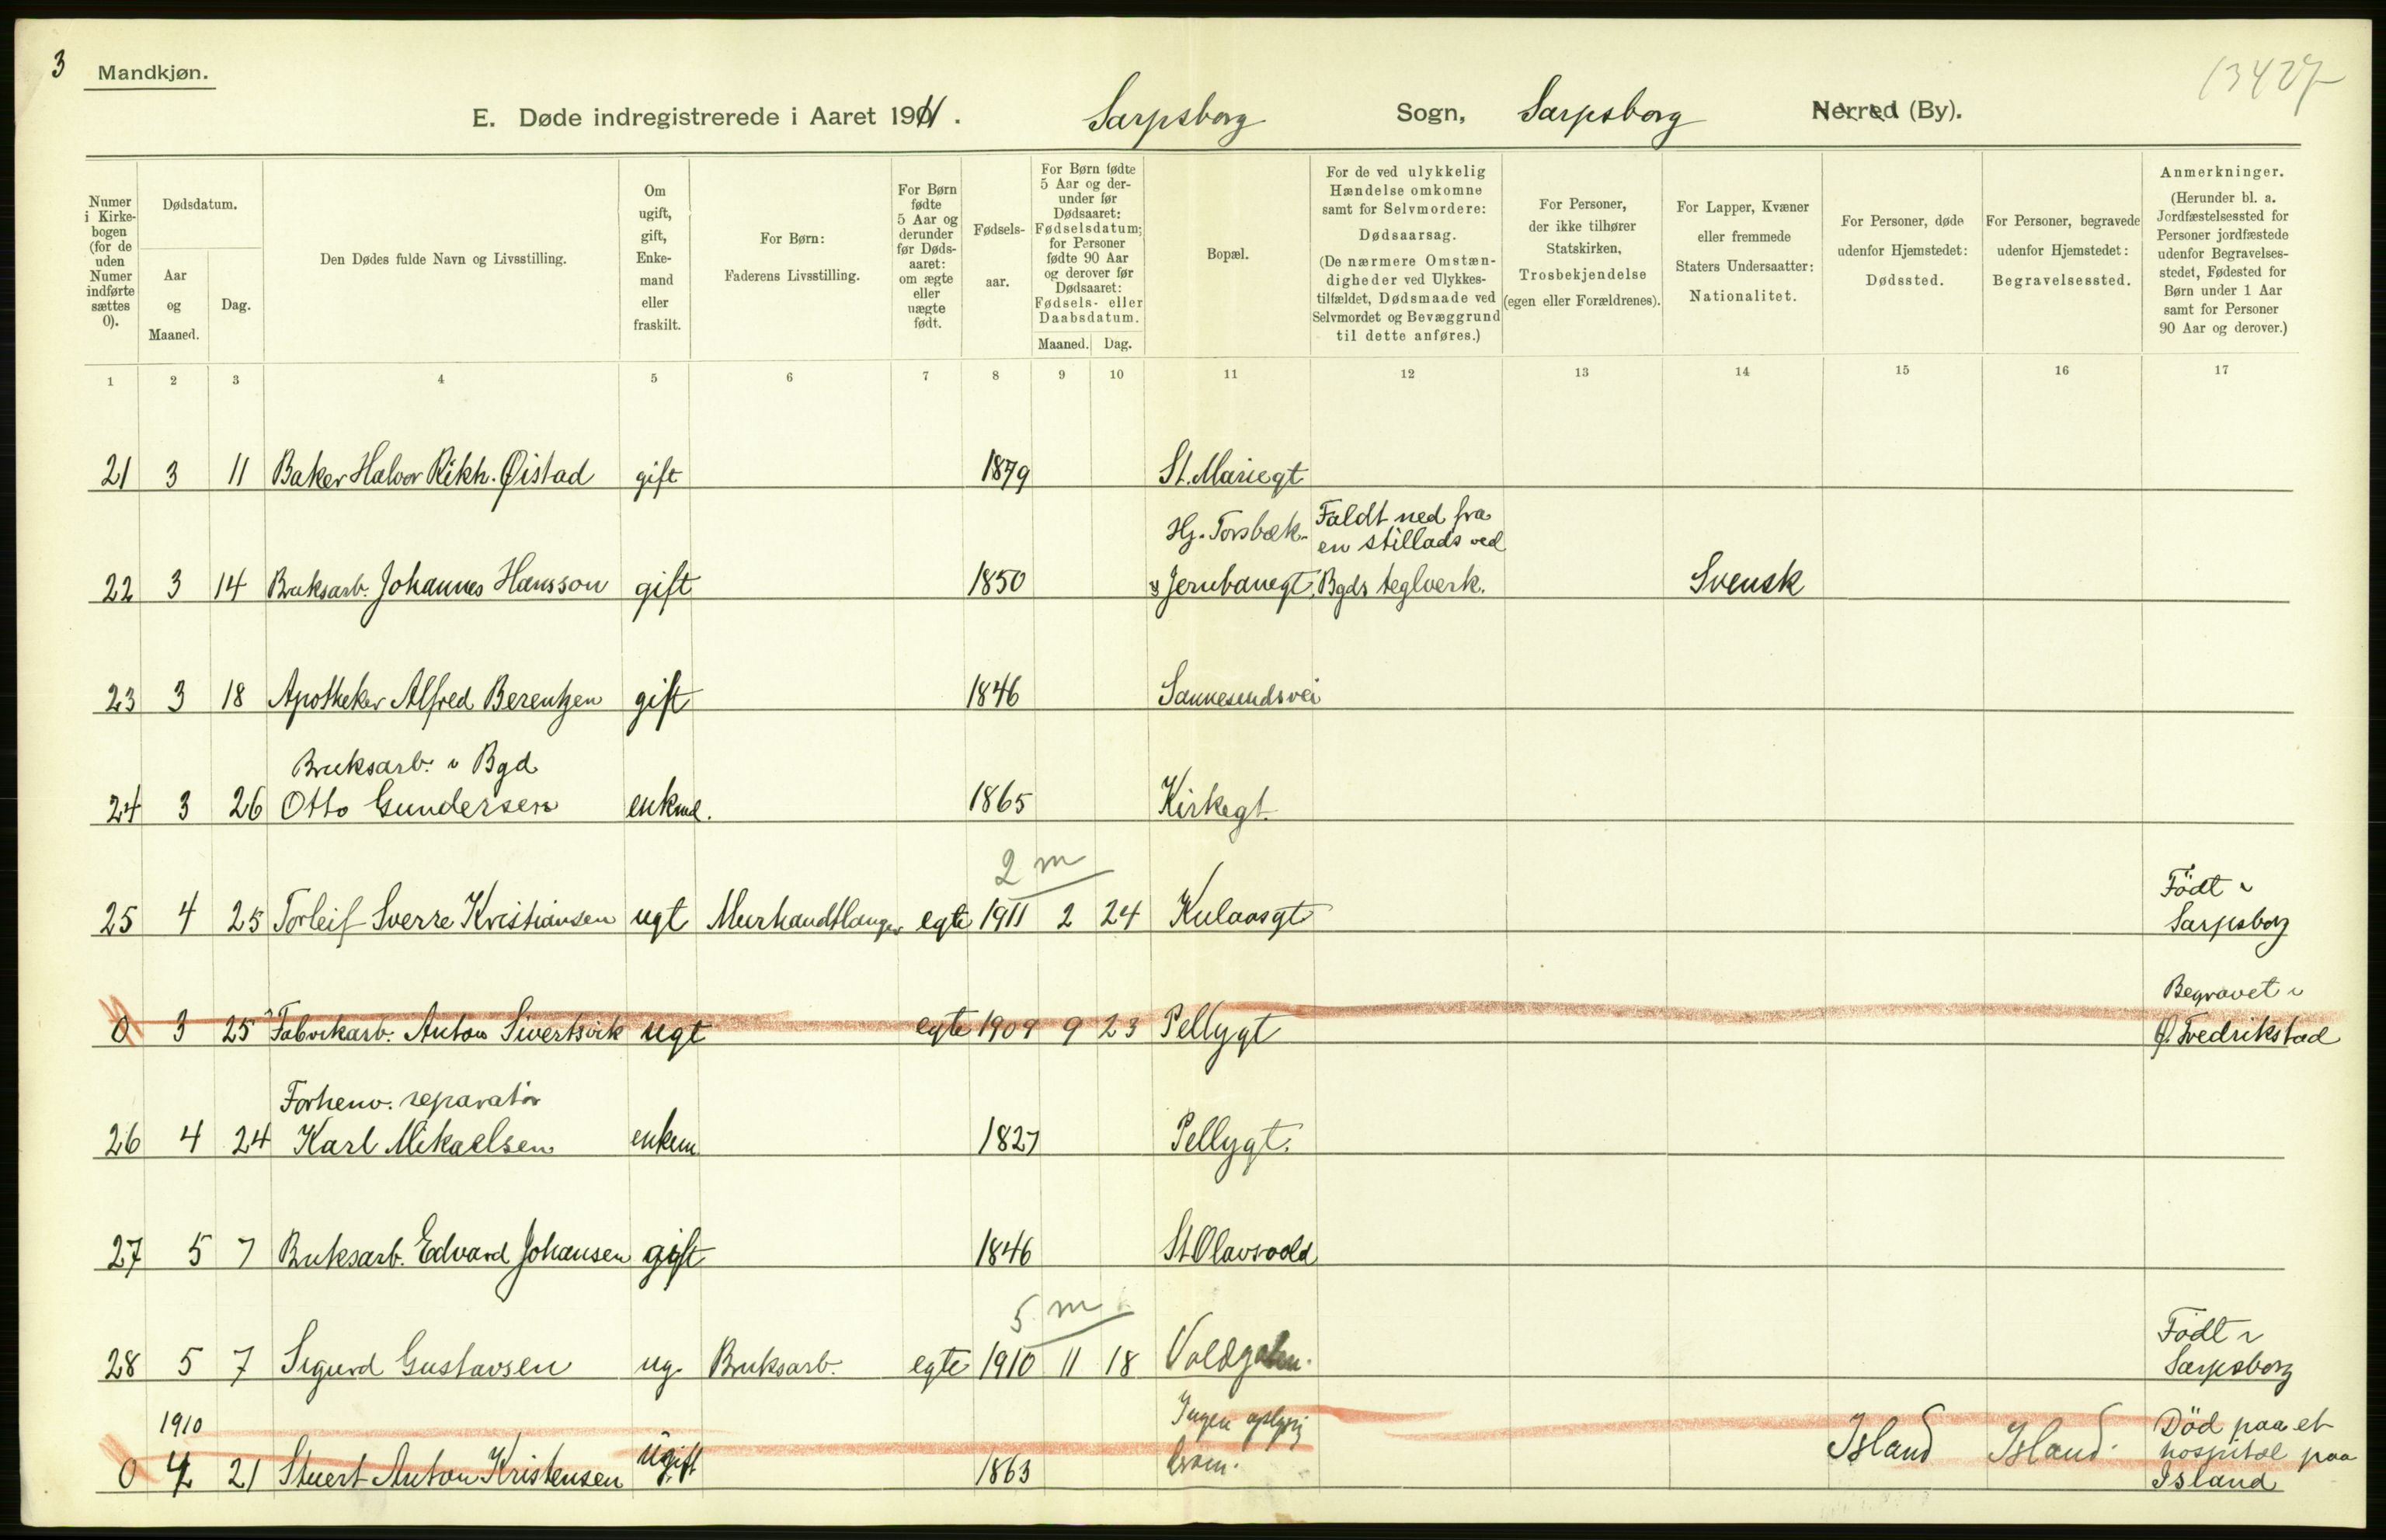 3 Mandkjøn.
13427
E. Døde indregistrerede i Aaret 1911. Sarpsborg Sogn, Sarpsborg Herred (By).
Numer i Kirke- bogen (for de uden Numer indførte sættes 0).
Dødsdatum.
Aar og Maaned.
Dag.
Den Dødes fulde Navn og Livsstilling.
Om ugift, gift, Enke- mand eller fraskilt.
For Børn: Faderens Livsstilling.
For Børn fødte 5 Aar og derunder før Døds- aaret: om ægte eller uægte født.
Fødsels- aar.
For Børn fødte 5 Aar og der- under før Dødsaaret: Fødselsdatum; for Personer fødte 90 Aar og derover før Dødsaaret: Fødsels- eller Daabsdatum.
Maaned. Dag.
Bopæl.
For de ved ulykkelig Hændelse omkomne samt for Selvmordere: Dødsaarsag. (De nærmere Omstæn- digheder ved Ulykkes- tilfældet, Dødsmaade ved Selvmordet og Bevæggrund til dette anføres.)
For Personer, der ikke tilhører Statskirken, Trosbekjendelse (egen eller Forældrenes).
For Lapper, Kvæner eller fremmede Staters Undersaatter: Nationalitet.
For Personer, døde udenfor Hjemstedet: Dødssted.
For Personer, begravede udenfor Hjemstedet: Begravelsessted.
Anmerkninger. (Herunder bl. a. Jordfæstelsessted for Personer jordfæstede udenfor Begravelses- stedet, Fødested for Børn under 1 Aar samt for Personer 90 Aar og derover.)
1 2 3 4 5 6 7 8 9 10 11 12 13 14 15 16 17
21 3 11 Baker Halvor Rikh. Øistad gift 1879 St. Mariegt
Hj. Torsbæk- Faldt ned fra
en stillads ved
22 3 14 Bruksarb. Johannes Hansson gift 1850 Jernbanegt. Bgds teglverk. Svensk
23 3 18 Apotheker Alfred Berentzen gift 1846 Sannesundsvei
Bruksarb. i Bgd
24 3 26 Otto Gundersen enkmd. 1865 Kirkegt.
2 m
Födt i
25 4 25 Torleif Sverre Kristiansen ugt Murhandtlanger egte 1911 2 24 Kulaasgt Sarpsborg
Begravet i
0 3 25 Fabrikarb. Anton Sivertsvik ugt egte 1909 9 23 Pellygt Ø. Fredrikstad
Forhenv. reparatör
26 4 24 Karl Mikaelsen enkem 1827 Pellygt.
27 5 7 Bruksarb. Edvard Johansen gift 1846 St Olavsvold
5 m
Födt i
28 5 7 Sigurd Gustavsen ug. Bruksarb. egte 1910 11 18 Voldgaten. Sarpsborg
1910 Ingen Död paa et
hospital paa
0 4 21 Stuert Anton Kristensen ugift 1863 Island Island. Island